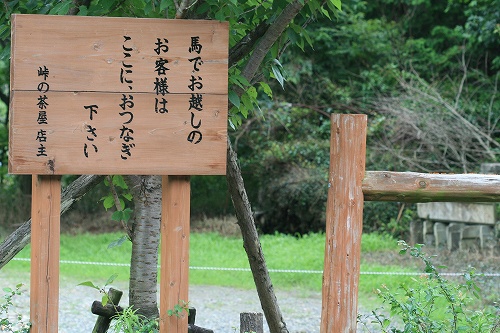 馬でお越しの
お客様は
ここに、おつなぎ
下さい
峠の茶屋店主